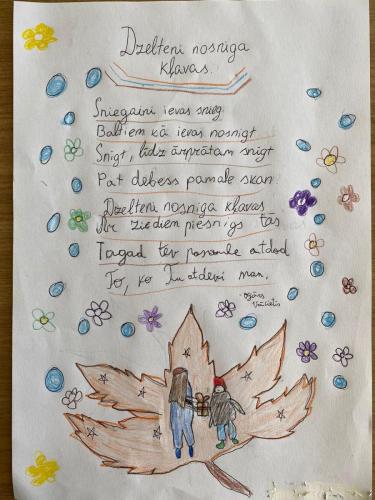 Dzelteni nosniga
kļavas.
Sniegaini ievas snieg.
Baltiem kā ievas nosnigt
Snigt, līdz ārprātam snigt
Pat debess pamale skan.
Dzelteni nosniga kļavas
Ar ziediem piesnigs tās
Tagad tev pasaule atdod
To, ko Tu atdevi man.
Ojārs
Vācietis